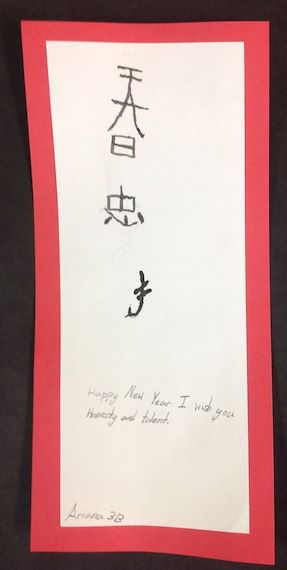 春
忠
才
Happy New Year I wish you
Honesty and talent.
Ariana 3B